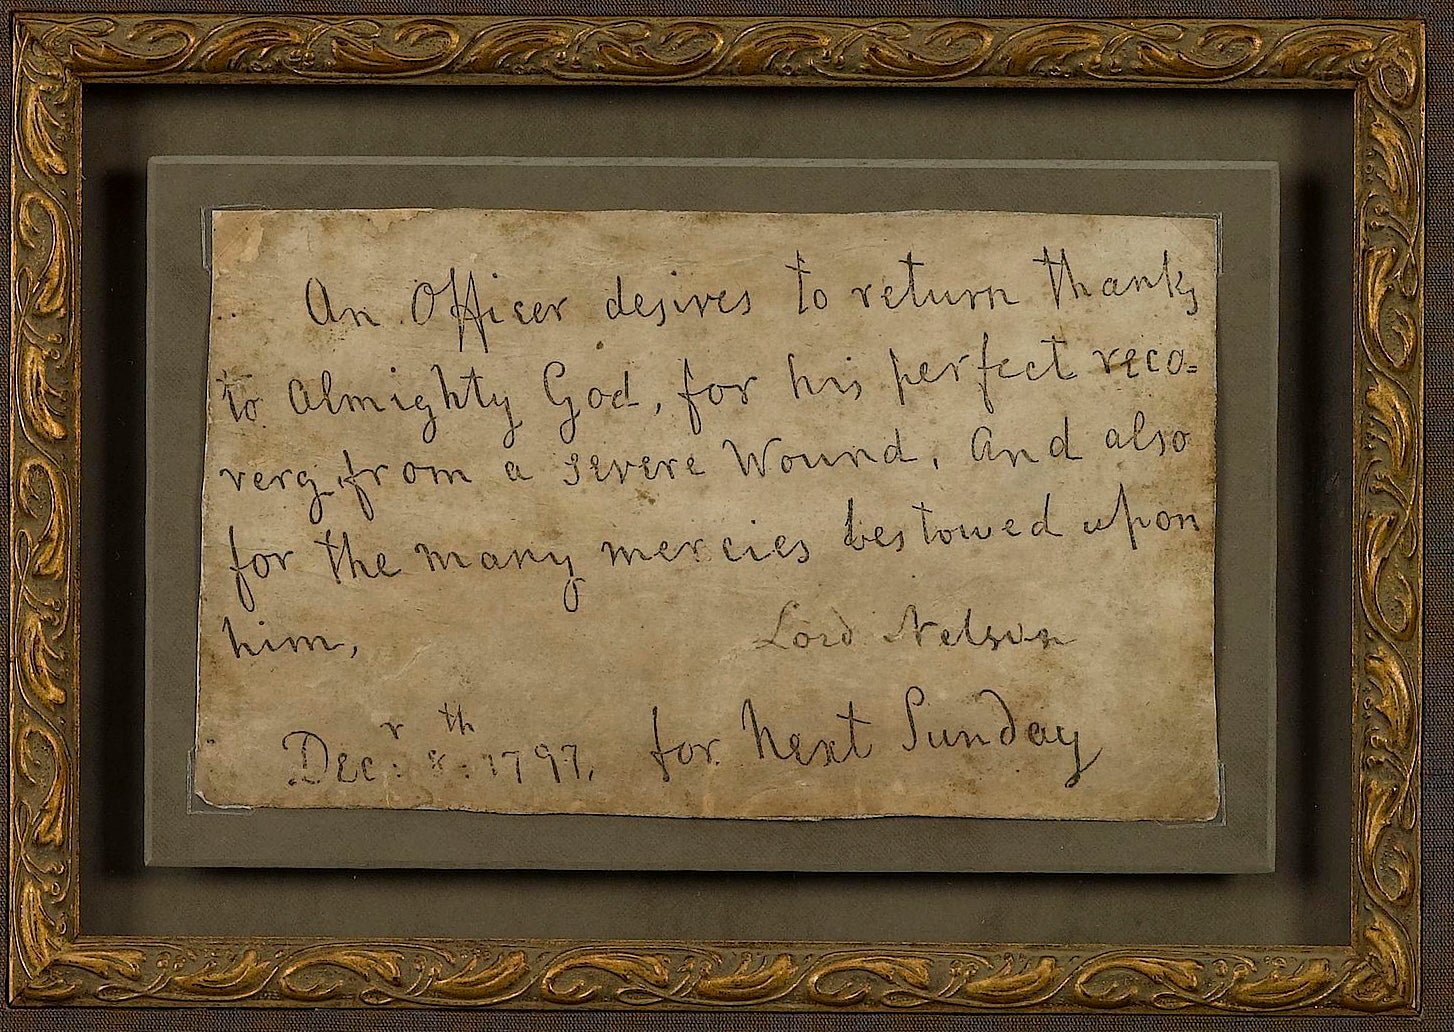 An Officer desires to return Thanks
to Almighty God, for his perfect reco=
very, from a severe Wound, And also
for the many mercies bestowed upon
him,
Lord Nelson
Decr. 8th. 1797. for Next Sunday